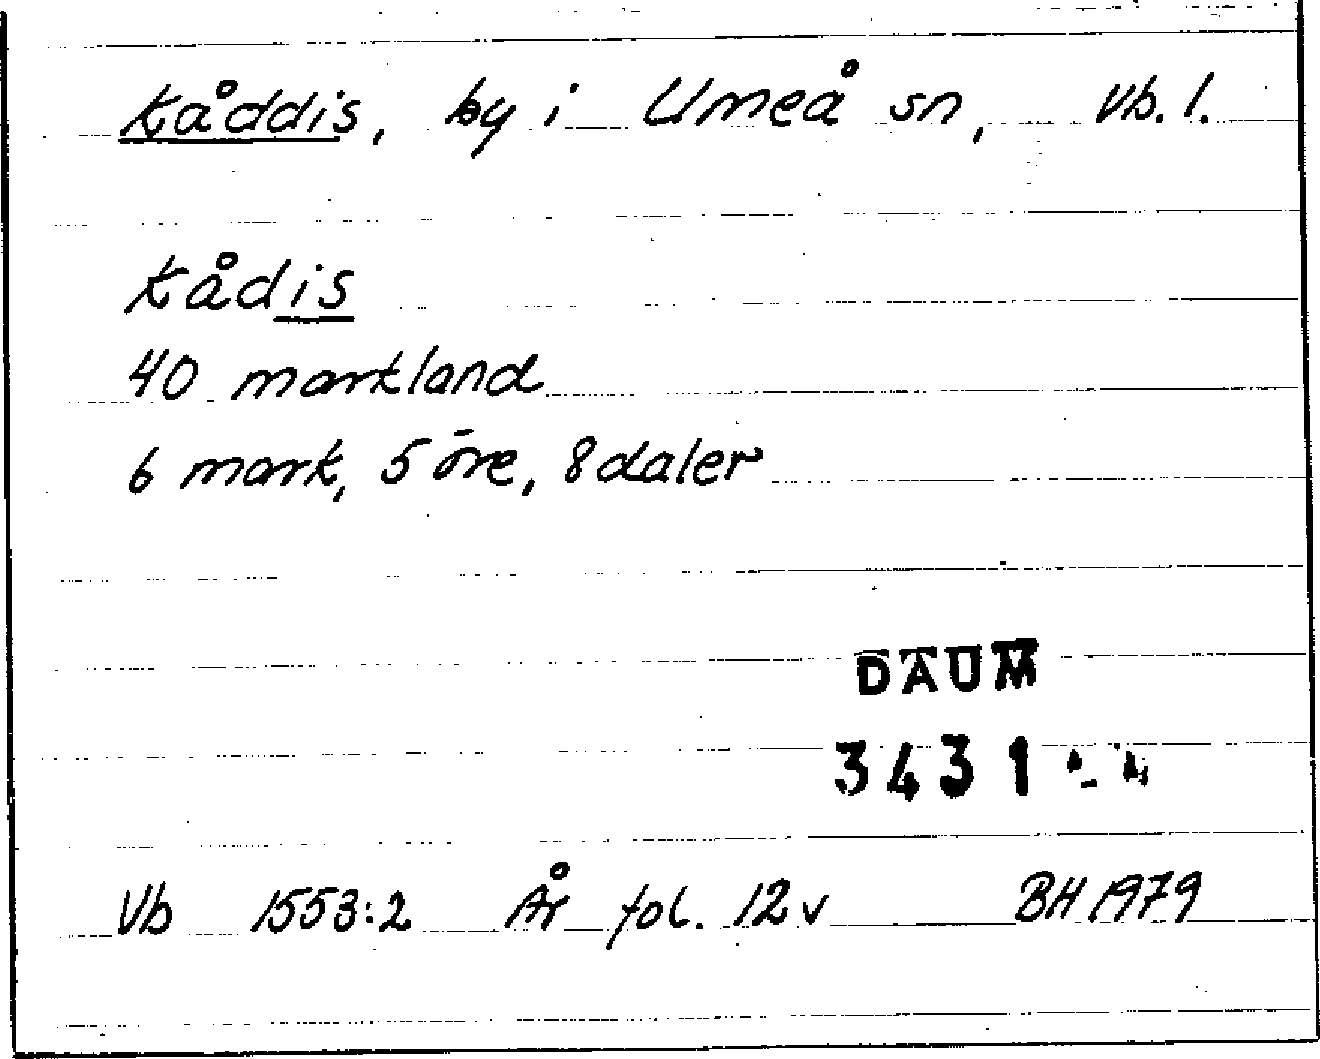 Kåddis, by i Umeå sn, Vb. l.
Kådis
40 markland
6 mark, 5 öre, 8 daler
DAUM
3431
Vb 1553:2 År fol. 12 v BH 1979